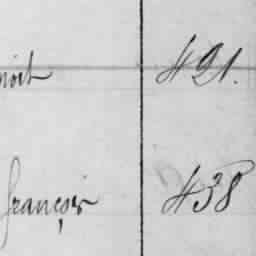 noit 421.
françois 438